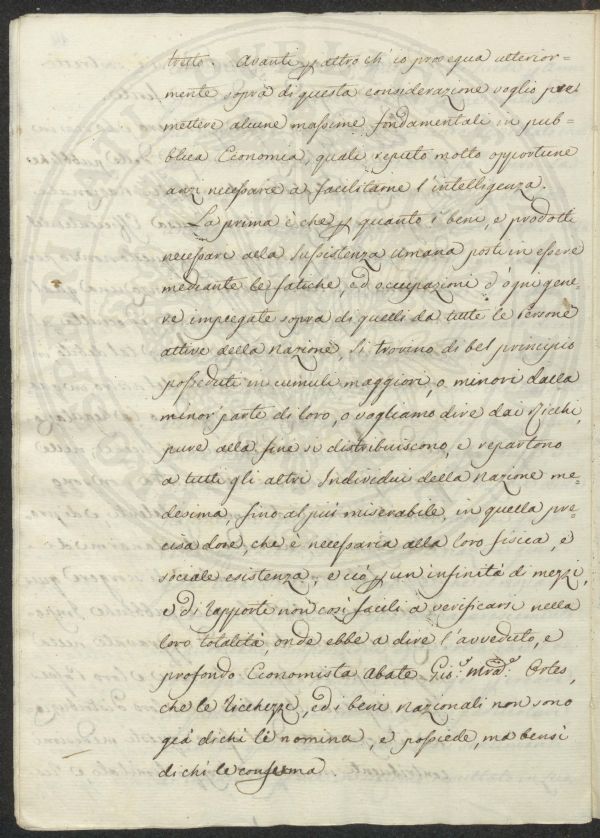 tutto. Avanti p altro ch'io prosequa ulterior=
mente sopra di questa considerazione voglio pre=
mettere alcune massime fondamentali in pub=
blica Economia, quali reputo molto opportune
anzi necessarie a facilitarne l'intelligenza.
La prima è che p quanto i beni, e prodotti
necessari alla sussistenza umana posti in essere
mediante le fatiche, ed occupazioni d'ogni gene=
re impiegate sopra di quelli da tutte le Persone
attive della Nazione, si trovino di bel principio
posseduti in cumuli maggiori, o minori dalla
minor parte di loro, o vogliamo dire dai Ricchi,
pure alla fine si distribuiscono, e repartono
a tutti gli altri Individui della Nazione me=
desima, fino al più miserabile, in quella pre=
cisa dose, che è necessaria alla loro fisica, e
sociale esistenza, e ciò p un infinità di mezzi,
e di rapporti non così facili a verificarsi nella
loro totalità, onde ebbe a dire l'avveduto, e
profondo Economista Abate Gio: Ma: Ortes,
che le Ricchezze, ed i beni Nazionali non sono
già di chi le nomina, e possiede, ma bensì
di chi le consuma.